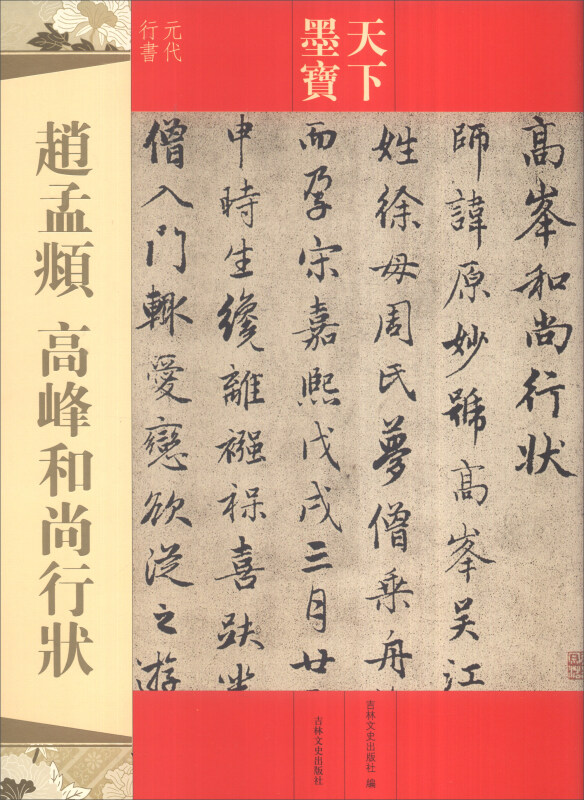 天下
墨寶
元代
行書
趙孟頫 高峰和尚行狀
高峯和尚行状
師諱原妙號高峯吴江
姓徐母周氏夢僧乘舟
而孕宋嘉熙戊戌三月廿
申時生纔離襁褓喜趺坐
僧入門輙愛戀欲從之游
吉林文史出版社 編
吉林文史出版社